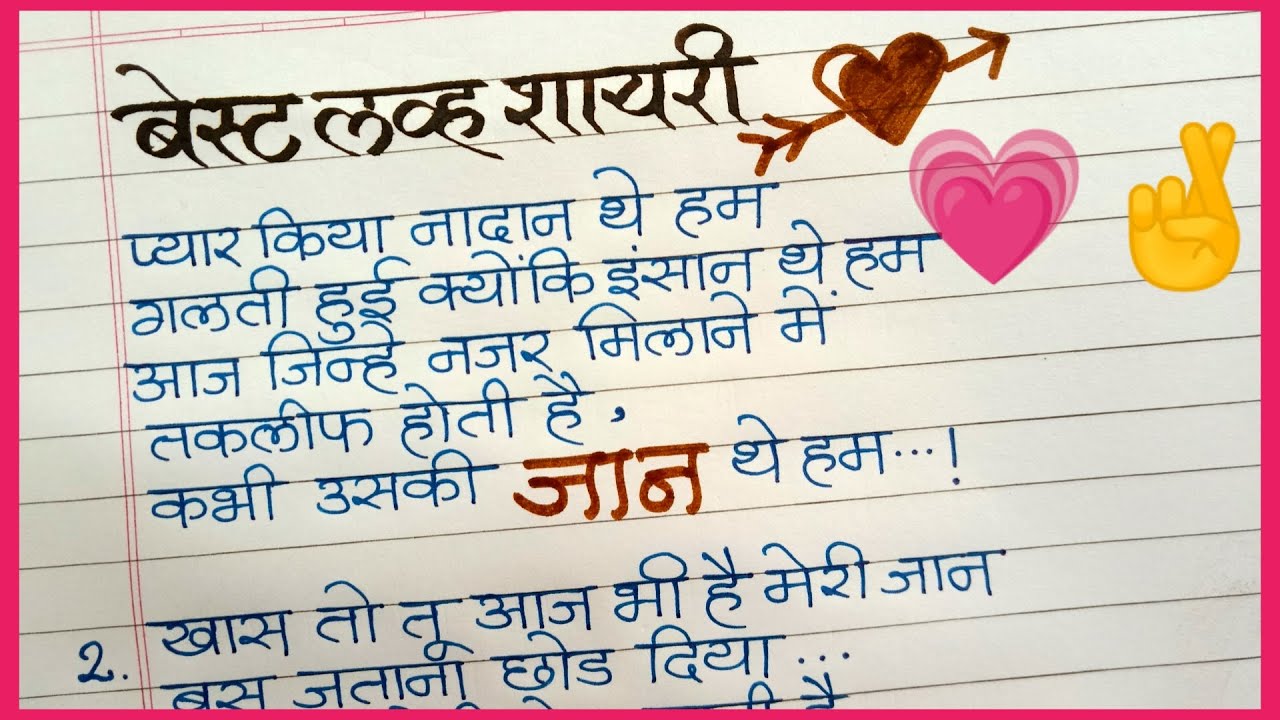 बेस्ट लव्ह शायरी
प्यार किया नादान थे हम
गलती हुई क्योंकि इंसान थे हम
आज जिन्हे नजर मिलाने में
तकलीफ होती है,
कभी उसकी जान थे हम...!
2. खास तो तू आज भी है मेरी जान
बस जताना छोड दिया...